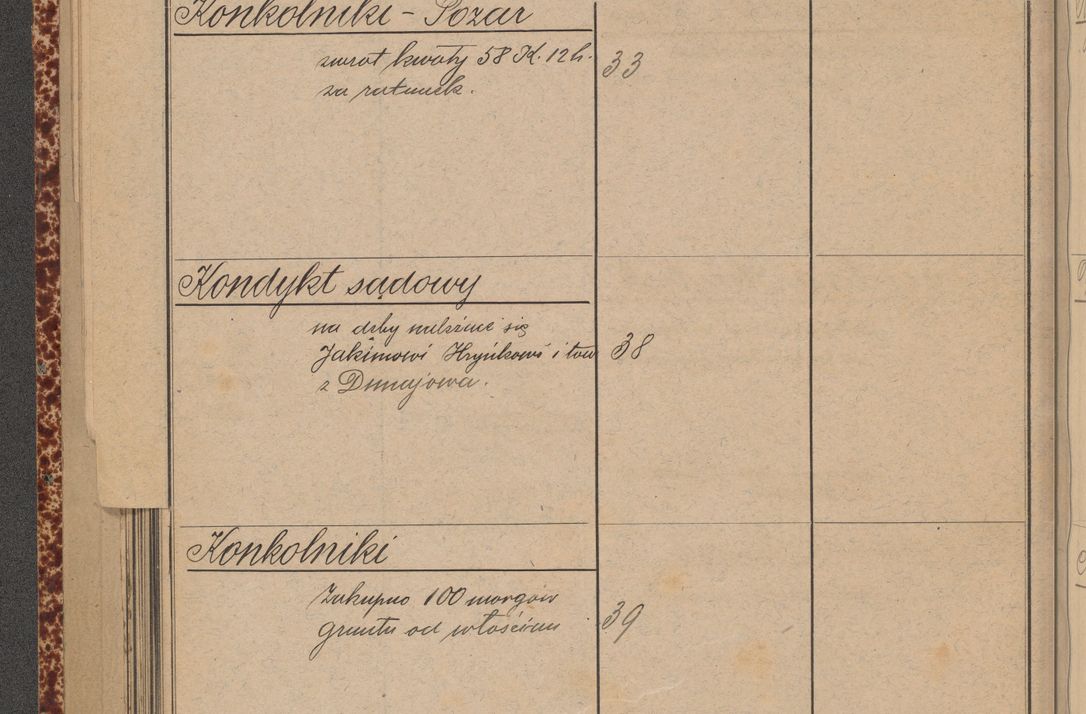 Konkolniki - Pożar
zwrot kwoty 58 K. 12 h. 33
za ratunek.
Kondykt sądowy
na dęby należące się
Jakimowi Hryńkowi i tow 38
z Dunajowa.
Konkolniki
Zakupno 100 morgów
gruntu od włościan 39